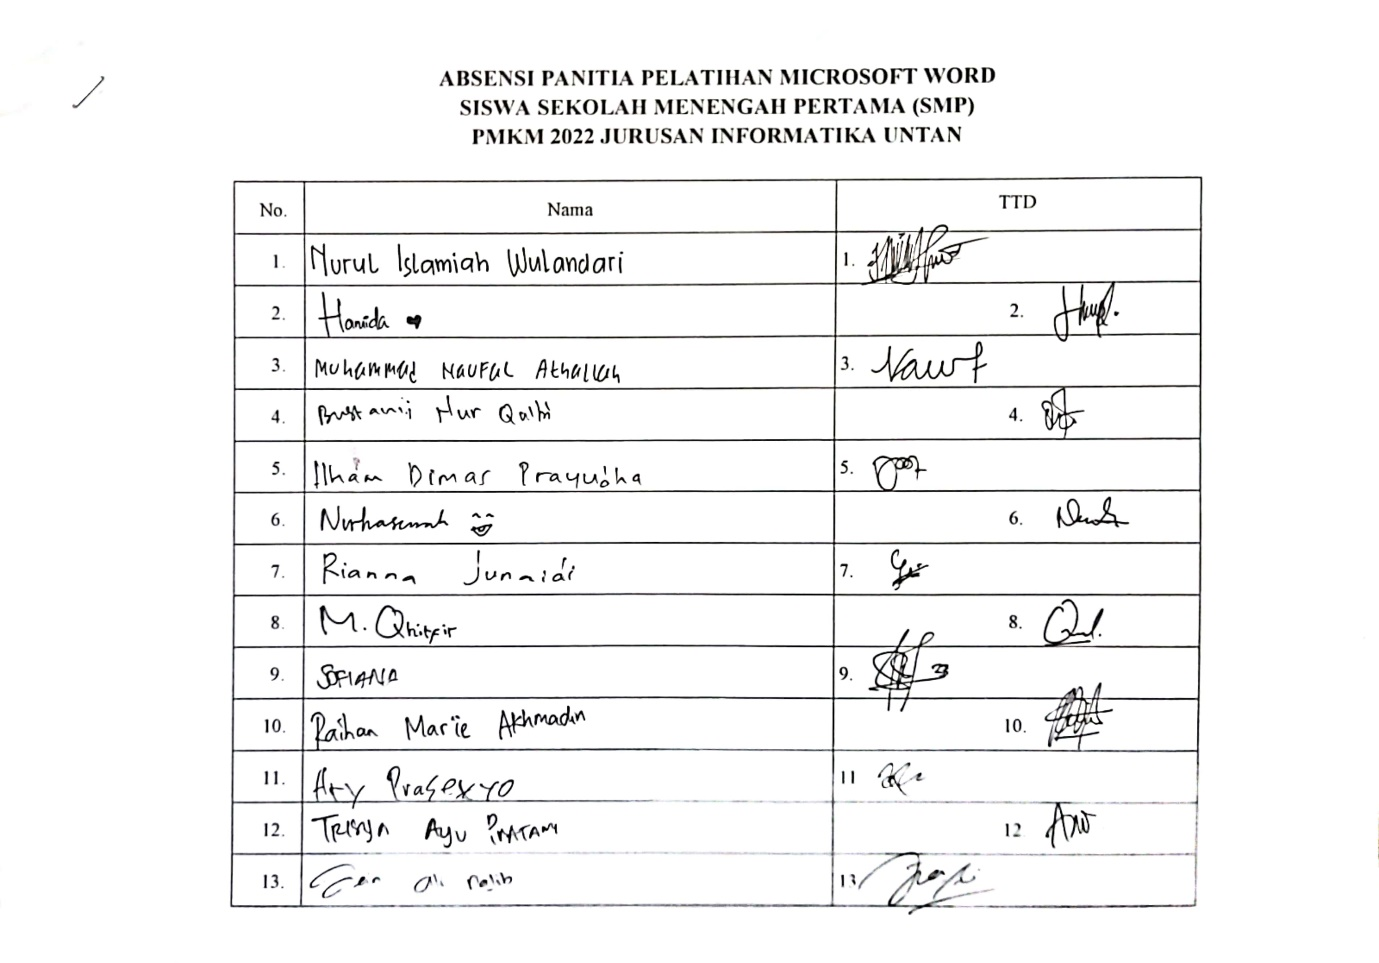 ABSENSI PANITIA PELATIHAN MICROSOFT WORD
SISWA SEKOLAH MENENGAH PERTAMA (SMP)
PMKM 2022 JURUSAN INFORMATIKA UNTAN
No. Nama TTD
1. Nurul Islamiah Wulandari 1.
2. Hamida 2.
3. Muhammad Naufal Athallah 3. Nauf
4. Bustanii Nur Qalbi 4.
5. Ilham Dimas Prayudha 5.
6. Nurhasanah 6.
7. Rianna Junaidi 7.
8. M. Qhitfir 8.
9. SOFIANA 9.
10. Raihan Marie Akhmadin 10.
11. Ary Prasetyo 11
12. Ayu PRATAMI 12
13. 13